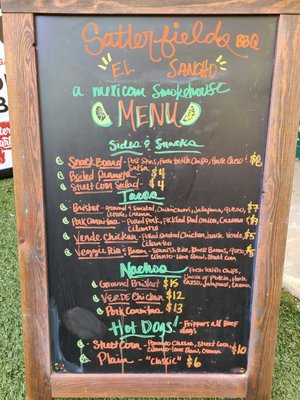 Satterfields BBQ
EL SANCHO
a mexican smokehouse
MENU
Sides & Snacks
Snack Board - Pork Skins, House Tortilla Chips, House Queso & $8
Salsa
Boiled Peanuts $4
Street Corn Salad - $4
Tacos
Brisket - Ground & Smoked, Chimichurri, Jalapeno, queso, $7
Crema
Pork Carnitas - Pulled Pork, Pickled Red Onion, Crema,
Cilantro
Verde Chicken - Pulled Smoked Chicken, House Verde $5
Cilantro
Veggie Rice & Beans - Spanish Rice, Black Beans, queso, $5
Cilantro Lime Slaw, Street Corn
Nachos - Fresh Tortilla Chips
Choice of Protein, House
Queso, Jalapeno, Crema
Ground Brisket $15
VERDE Chicken $12
Pork Carnitas $13
Hot Dogs! - Frippers all beef
dogs
Street Corn - Street Corn $10
Cilantro Lime Slaw, Crema
Plain - "Classic" $6